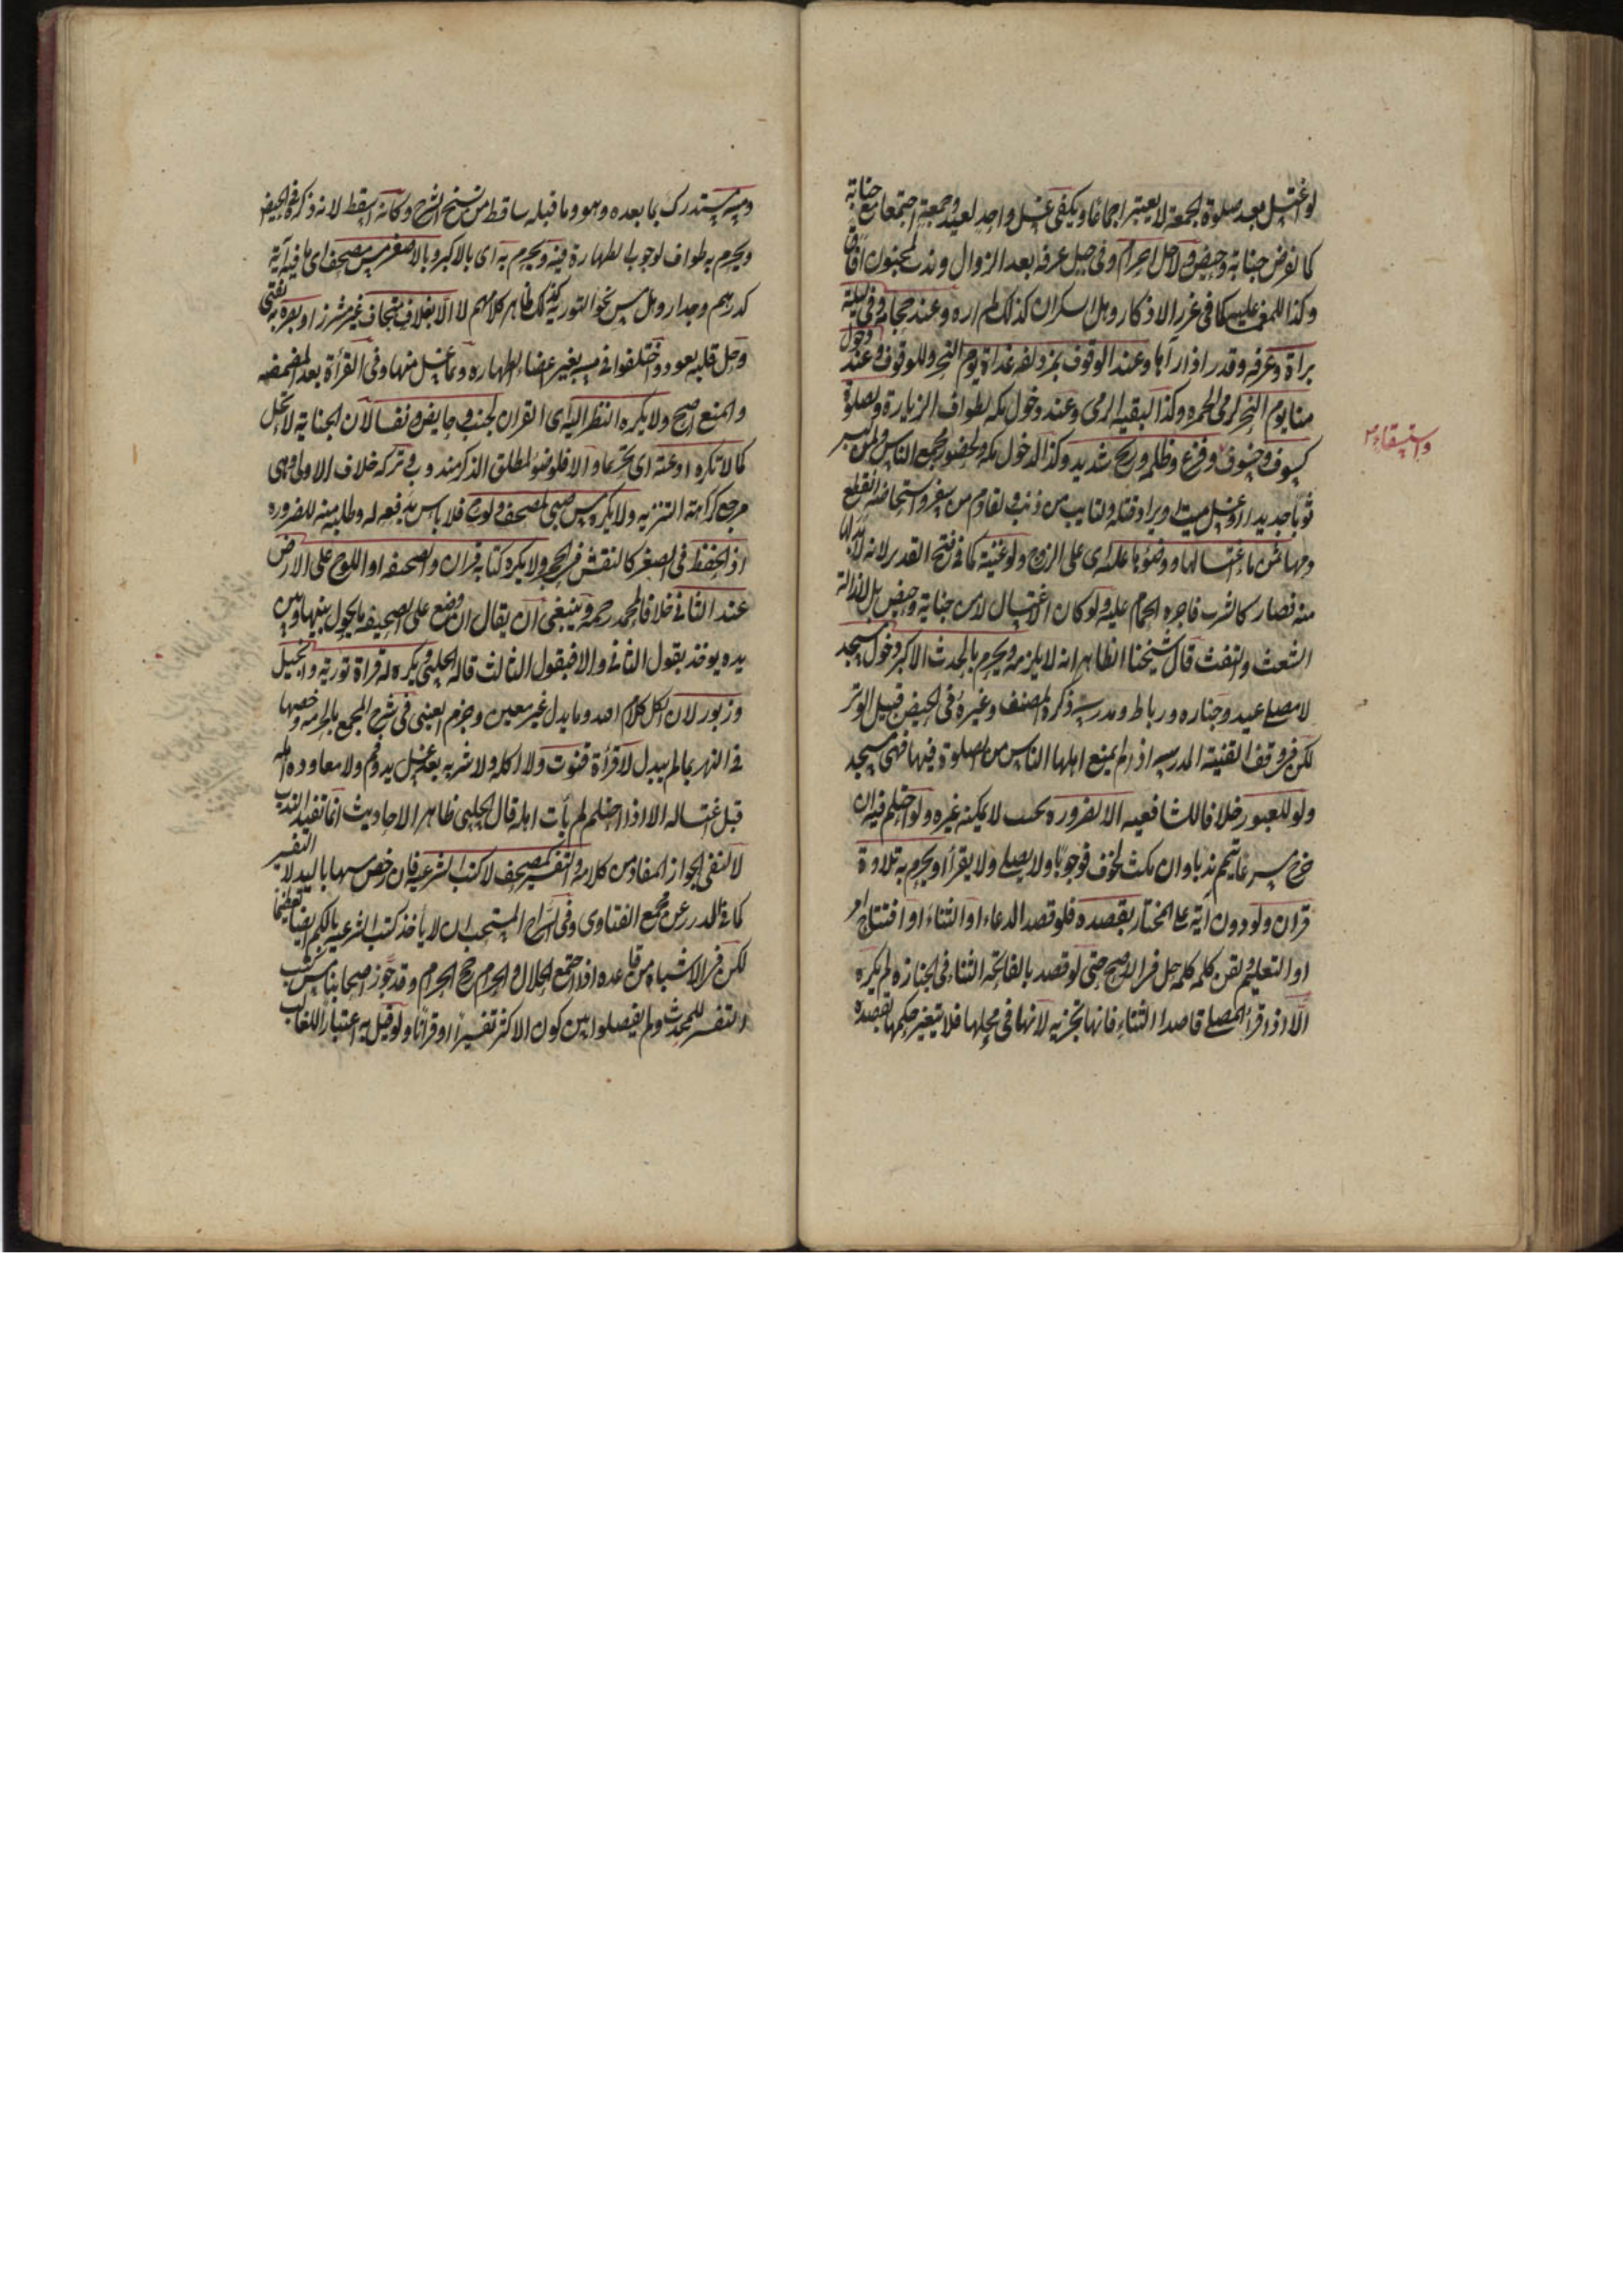 لو اغتسل بعد صلوة الجمعة لا يعتبر اجماعا ويكفى غسل واحد لعيد وجمعة اجتمعا مع جنابة
كما لفرض جنابة وحيض ولاجل احرام وفى جبل عرفه بعد الزوال وندب لمجنون افاق
وكذا للمغمى عليه كما فى غرر الاذكار وهل السكران كذلك لم اره وعند حجامة وفى ليلة
براة وعرفه وقدر اذا رآها وعند الوقوف بمزدلفه غداة يوم النحر وللوقوف وعند دخول
منا يوم النحر لرمى الجمره وكذا لبقية الرمى وعند دخول مكه لطواف الزيارة ولصلوة
كسوف وخسوف وفزع وظلمه وريح شديد وكذا لدخول مكه ولحضور مجمع الناس ولمن لبس
ثوبا جديدا او غسل ميتا ويراد قتله ولتايب من ذنب ولقادم من سفر ولمستحاضه انقطع
دمها ثمن ماء اغتسالها ووضوءها عليه اى على الزوج ولو غنية كما فى فتح القدير لانه لا بد لها
منه فصار كالشرب فاجره الحمام عليه ولو كان الاغتسال لا من جنابة وحيض بل لازالة
الشعث والتفث قال شيخنا الظاهر انه لا يلزمه ويحرم بالحدث الاكبر دخول مسجد
لا مصلى عيد وجنازه ورباط ومدرسة ذكره المصنف وغيره فى الحيض قبيل الوتر
لكن فى وقف القنية المدرسه اذا لم يمنع اهلها الناس من الصلوة فيها فهى مسجد
ولو للعبور خلافا للشافعيه الا لضروره بحيث لا يمكنه غيره ولو احتلم فيه ان
خرج مسرعا تيمم ندبا وان مكث لخوف فوجوبا ولا يصلى ولا يقرأ ويحرم به تلاوة
قران ولو دون آية على المختار بقصده فلو قصد الدعاء او الثناء او افتتاح امر
او التعليم ولقن كلمه كلمه حل فى الاصح حتى لو قصد بالفاتحه الثناء فى الجنازه لم يكره
الا اذا قرأ المصلى قاصدا الثناء فانها تجزيه لانها فى محلها فلا يتغير حكمها بقصده
واستسقاء
ومسه مستدرك بما بعده وهو وما قبله ساقط من نسخ الشرح وكانه اسقط لانه ذكره فى الحيض
ويحرم به طواف لوجوب الطهارة فيه ويحرم به اى بالاكبر وبالاصغر مس مصحف اى ما فيه آية
كدرهم وجدار وهل مس نحو التورية كذلك ظاهر كلامهم لا الا بغلاف متجاف غير مشرز او بصره به يفتى
وحل قلبه بعود واختلفوا فى مسه بغير اعضاء الطهاره وبما غسل منها وفى القرأة بعد المضمضه
والمنع اصح ولا يكره النظر اليه اى القران لجنب وحايض ونفسا لان الجنابة لا تحل
كما لا تكره ادعية اى تحريما والا فالوضوء لمطلق الذكر مندوب وتركه خلاف الاولى وهى
مرجع كراهة التنزيه ولا يكره مس صبى لمصحف ولوح فلا باس بدفعه له وطلبه منه للضروره
اذ الحفظ فى الصغر كالنقش فى الحجر ولا يكره كتابة قران والصحيفه او اللوح على الارض
عند الثانى خلافا لمحمد رحمه وينبغى ان يقال ان وضع على الصحيفه ما يحول بينها وبين
يده يوخذ بقول الثانى والا فبقول الثالث قاله الحلبى ويكره له قراة تورية وانجيل
وزبور لان الكل كلام الله وما بدل غير معين وجزم العينى فى شرح المجمع بالحرمه وخصها
فى النهر بما لم يبدل لا قرأة قنوت ولا اكله ولا شربه بعد غسل يد وفم ولا معاودة اهله
قبل اغتساله الا اذا احتلم لم يأت اهله قال الحلبى ظاهر الاحاديث انما تفيد الندب
لا نفى الجواز المفاد من كلامه والتفسير كمصحف لا كتب الشرعيه فان رخص مسها باليد لا التفسير
كما فى الدرر عن مجمع الفتاوى وفى السراج المستحب ان لا يأخذ كتب الشرعيه بالكم ايضا تعظيما
لكن فى الاشباه من قاعده اذا اجتمع الحلال والحرام رجح الحرام وقد جوز اصحابنا مس كتب
التفسير للمحدث ولم يفصلوا بين كون الاكثر تفسيرا او قرانا ولو قيل به اعتبارا للغالب